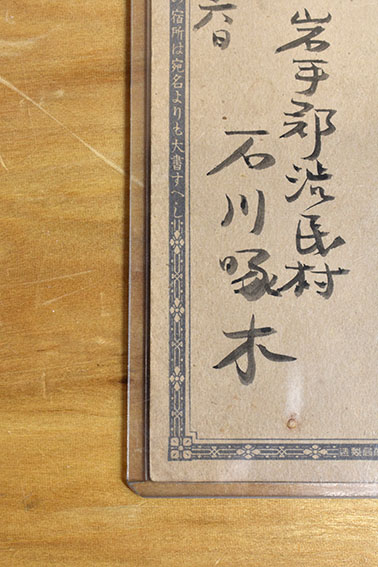 岩手郡渋民村
石川啄木
六日
宿所は宛名よりも大書すへし